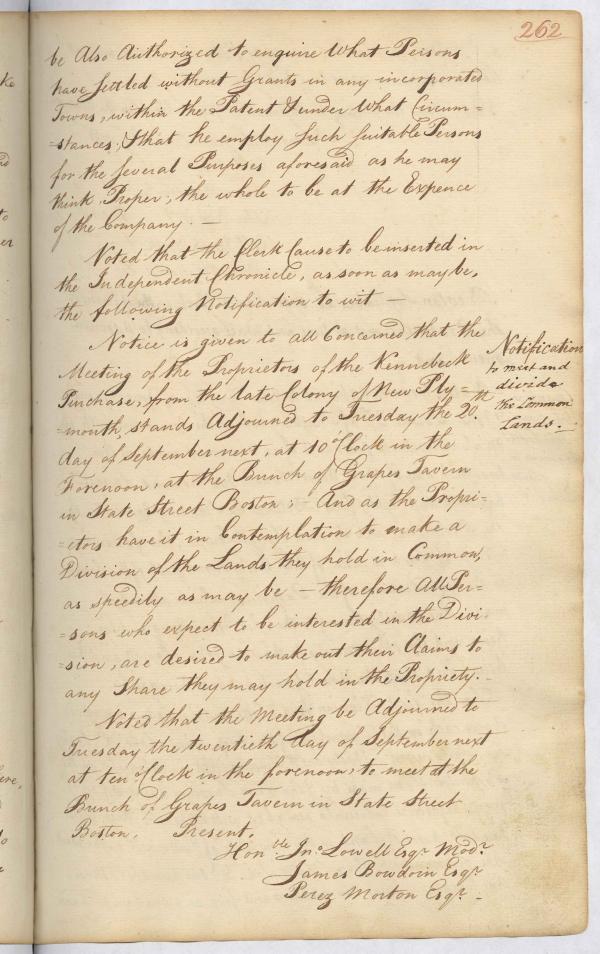 262
be Also Authorized to enquire What Persons
have Settled without Grants in any incorporated
Towns, within the Patent & under What Circum=
=stances; & that he employ Such Suitable Persons
for the Several Purposes aforesaid as he may
think Proper; the whole to be at the Expence
of the Company. —
Noted that the Clerk Cause to be inserted in
the Independent Chronicle, as soon as may be,
the following Notification to wit —
Notice is given to all Concerned that the
Meeting of the Proprietors of the Kennebeck
Purchase, from the late Colony of New Ply=
=mouth, stands Adjourned to Tuesday the 20th
day of September next, at 10 oClock in the
Forenoon, at the Bunch of Grapes Tavern
in State Street Boston; — And as the Propri=
=etors have it in Contemplation to make a
Division of the Lands they hold in Common,
as speedily as may be — therefore All Per=
=sons who expect to be interested in the Divi
=sion, are desired to make out their Claims to
any Share they may hold in the Propriety. —
Noted that the Meeting be Adjourned to
Tuesday the twentieth day of September next
at ten oClock in the forenoon, to meet at the
Bunch of Grapes Tavern in State Street
Boston. Present,
Honble Jno Lowell Esqr Modr
James Bowdoin Esqr
Perez Morton Esqr —
Notification
to meet and
divide
the Common
Lands. —